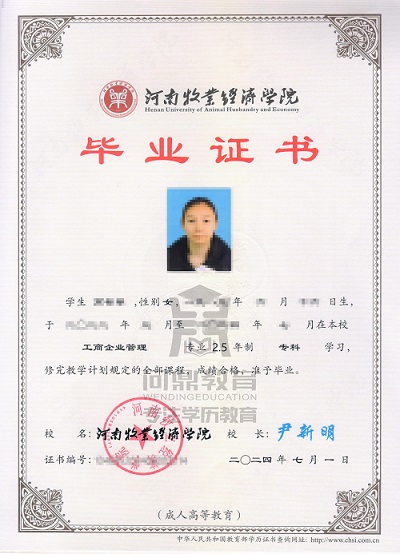 河南牧业经济学院
Henan University of Animal Husbandry and Economy
毕业证书
学生 ,性别女, 年 月 日生,
于 年 月至 年 月在本校
工商企业管理 专业 2.5 年制 专科 学习,
修完教学计划规定的全部课程,成绩合格,准予毕业。
问鼎教育
WENDINGEDUCATION
专注学历教育
校 名: 河南牧业经济学院 校 长: 尹新明
证书编号: 二〇二四年七月一日
(成人高等教育)
中华人民共和国教育部学历证书查询网址: http://www.chsi.com.cn